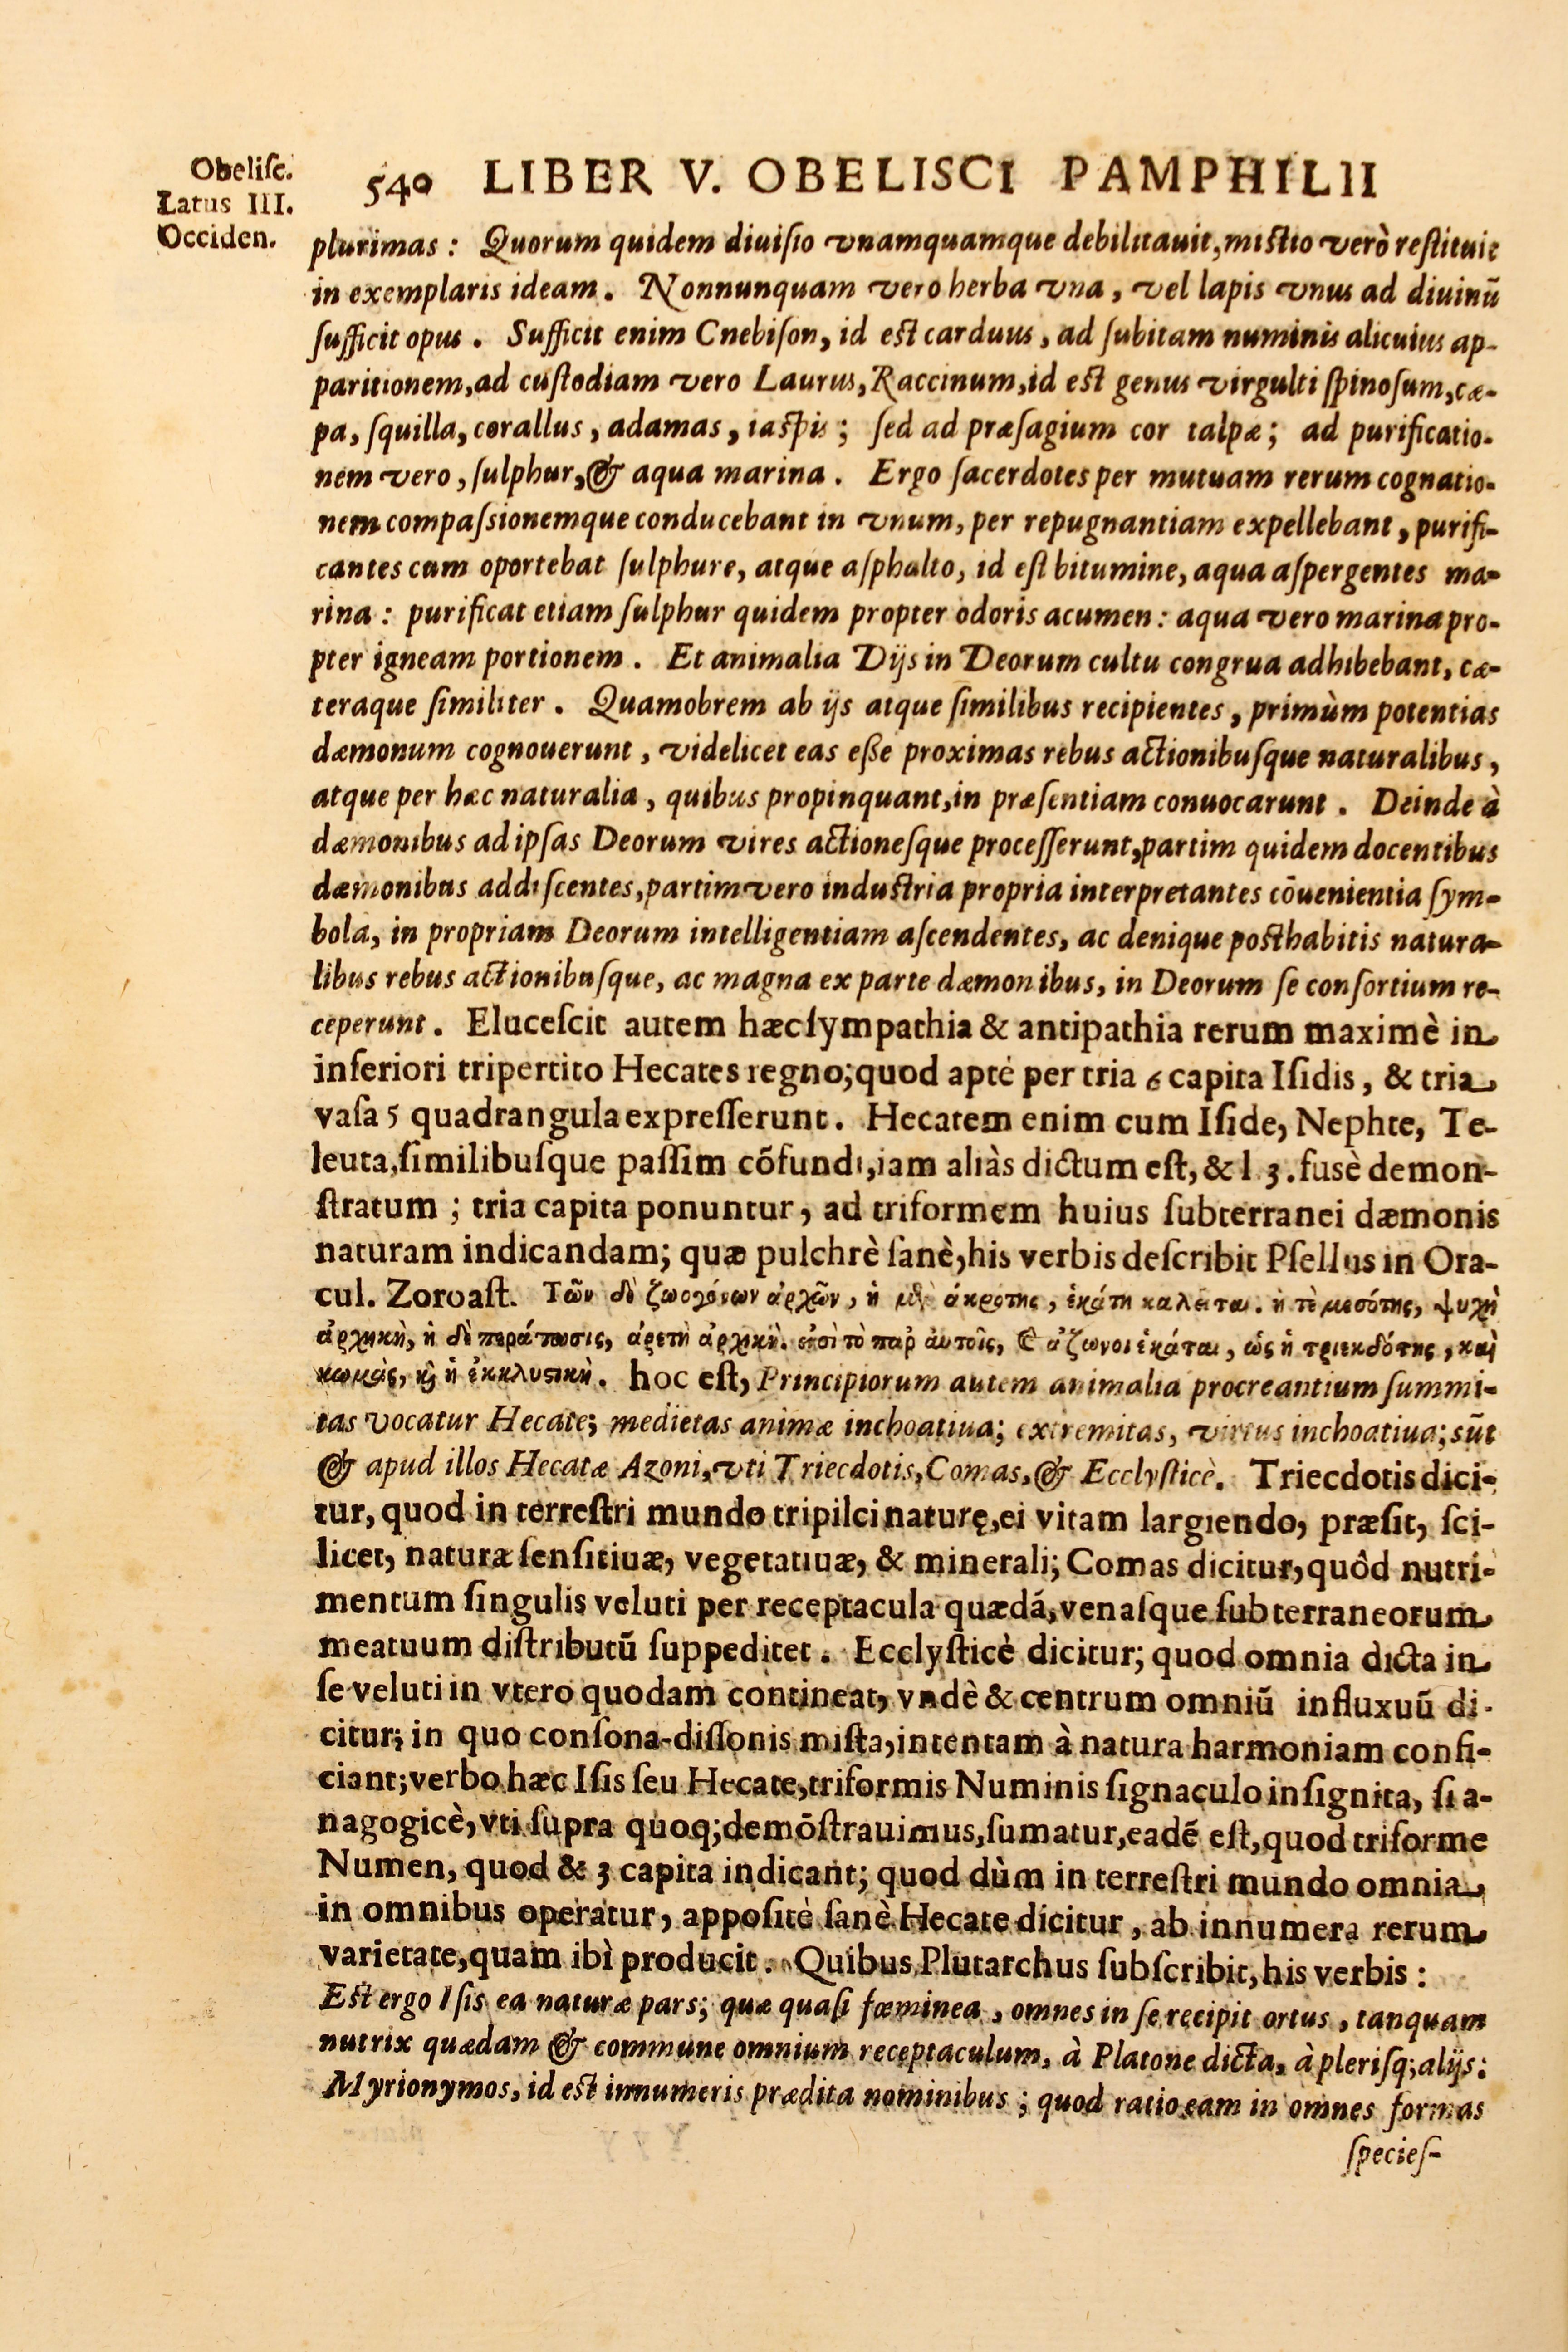 Obelisc.
Latus III.
Occiden.
540 LIBER V. OBELISCI PAMPHILII
plurimas: Quorum quidem diuisio vnamquamque debilitauit, mistio verò restituit
in exemplaris ideam. Nonnunquam vero herba vna, vel lapis vnus ad diuinũ
sufficit opus. Sufficit enim Cnebison, id est carduus, ad subitam numinis alicuius ap-
paritionem, ad custodiam vero Laurus, Raccinum, id est genus virgulti spinosum, cæ-
pa, squilla, corallus, adamas, iaspis; sed ad præsagium cor talpæ; ad purificatio-
nem vero, sulphur, & aqua marina. Ergo sacerdotes per mutuam rerum cognatio-
nem compassionemque conducebant in vnum, per repugnantiam expellebant, purifi-
cantes cum oportebat sulphure, atque asphalto, id est bitumine, aqua aspergentes ma-
rina: purificat etiam sulphur quidem propter odoris acumen: aqua vero marina pro-
pter igneam portionem. Et animalia Dijs in Deorum cultu congrua adhibebant, cæ-
teraque similiter. Quamobrem ab ijs atque similibus recipientes, primùm potentias
dæmonum cognouerunt, videlicet eas esse proximas rebus actionibusque naturalibus,
atque per hæc naturalia, quibus propinquant, in præsentiam conuocarunt. Deinde à
dæmonibus ad ipsas Deorum vires actionesque processerunt, partim quidem docentibus
dæmonibus addiscentes, partim vero industria propria interpretantes cõuenientia sym-
bola, in propriam Deorum intelligentiam ascendentes, ac denique posthabitis natura-
libus rebus actionibusque, ac magna ex parte dæmonibus, in Deorum se consortium re-
ceperunt. Elucescit autem hæc sympathia & antipathia rerum maximè in
inferiori tripertito Hecates regno; quod aptè per tria 6 capita Isidis, & tria
vasa 5 quadrangula expresserunt. Hecatem enim cum Iside, Nephte, Te-
leuta, similibusque passim cõfundi, iam aliàs dictum est, & l 3. fusè demon-
stratum; tria capita ponuntur, ad triformem huius subterranei dæmonis
naturam indicandam; quæ pulchrè sanè, his verbis describit Psellus in Ora-
cul. Zoroast. Τῶν δὲ ζωογόνων ἀρχῶν, ἡ μὲν ἀκρότης, ἑκάτη καλεῖται. ἡ τὲ μεσότης, ψυχὴ
ἀρχικὴ, ἡ δὲ περάτωσις, ἀρετὴ ἀρχικὴ. εἰσὶ τὸ παρ αὐτοῖς, & ἀζωνοι ἑκάται, ὡς ἡ τριεκδότης, καὶ
κωμὰς, καὶ ἡ ἐκκλυστικὴ. hoc est, Principiorum autem animalia procreantium summi-
tas vocatur Hecate; medietas animæ inchoatiua; extremitas, virtus inchoatiua; sũt
& apud illos Hecatæ Azoni, vti Triecdotis, Comas, & Ecclysticè. Triecdotis dici-
tur, quod in terrestri mundo tripilci naturę, ei vitam largiendo, præsit, sci-
licet, naturæ sensitiuæ, vegetatiuæ, & minerali; Comas dicitur, quòd nutri-
mentum singulis veluti per receptacula quædã, venasque subterraneorum
meatuum distributũ suppeditet. Ecclysticè dicitur; quod omnia dicta in
se veluti in vtero quodam contineat, vndè & centrum omniũ influxuũ di-
citur; in quo consona-dissonis mista, intentam à natura harmoniam confi-
ciant; verbo hæc Isis seu Hecate, triformis Numinis signaculo insignita, si a-
nagogicè, vti supra quoq; demõstrauimus, sumatur, eadẽ est, quod triforme
Numen, quod & 3 capita indicant; quod dùm in terrestri mundo omnia
in omnibus operatur, appositè sanè Hecate dicitur, ab innumera rerum
varietate, quam ibì producit. Quibus Plutarchus subscribit, his verbis:
Est ergo Isis ea naturæ pars; quæ quasi fœminea, omnes in se recipit ortus, tanquam
nutrix quædam & commune omnium receptaculum, à Platone dicta, à plerisq; alijs:
Myrionymos, id est innumeris prædita nominibus; quod ratio eam in omnes formas
species-